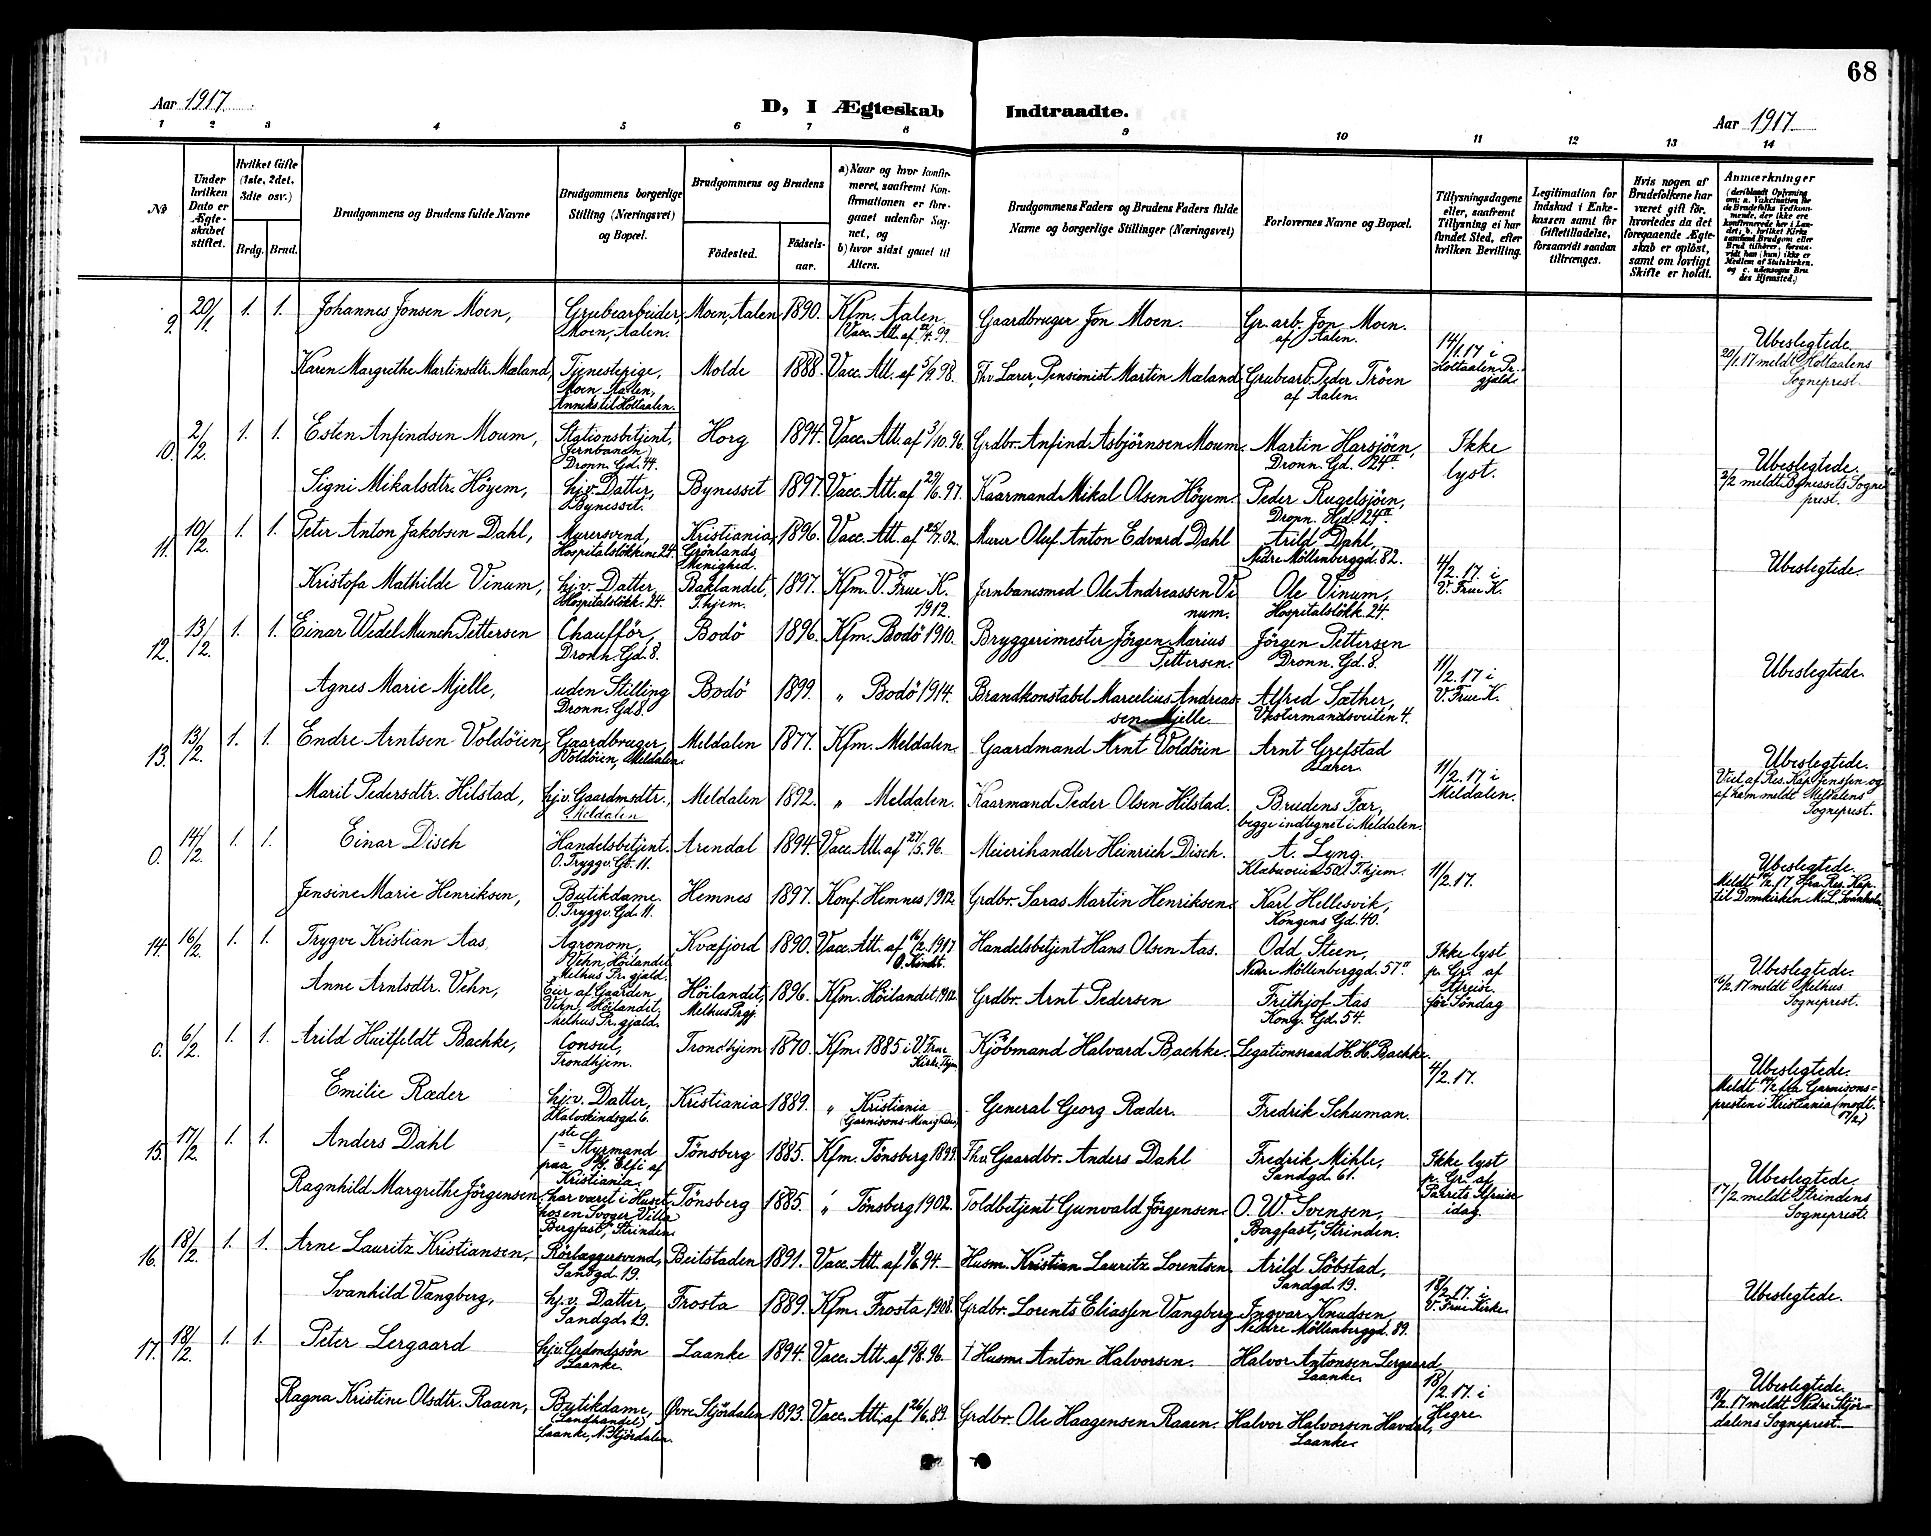 68
Aar 1917.
D, I Ægteskab Indtraadte.
Aar 1917
1 2 3 4 5 6 7 8 9 10 11 12 13 14
No
Under hvilken Dato er Ægteskabet stiftet.
Hvilket Gifte (1ste, 2det, 3die osv.)
Brdg. Brud.
Brudgommens og Brudens fulde Navne
Brudgommens borgerlige Stilling (Næringsvei) og Bopæl.
Brudgommens og Brudens
Fødested.
Fødselsaar.
a) Naar og hvor konfirmeret, saafremt Konfirmationen er foregaaet udenfor Sognet, og
b) hvor sidst gaaet til Alters.
Brudgommens Faders og Brudens Faders fulde Navne og borgerlige Stillinger (Næringsvei)
Forlovernes Navne og Bopæl.
Tillysningsdagene eller, saafremt Tillysning ei har fundet Sted, efter hvilken Bevilling.
Legitimation for Indskud i Enkekassen samt for Giftetilladelse, forsaavidt saadan tiltrænges.
Hvis nogen af Brudefolkene har været gift før, hvorledes da det foregaaende Ægteskab er opløst, samt om lovligt Skifte er holdt.
Anmærkninger
9. 20/1 1. 1. Johannes Jonsen Moen, Grubearbeider, Moen, Aalen. Moen, Aalen 1890. Kfm. Aalen. Gaardbruger Jon Moen. Gr. arb. Jon Moen. af Aalen.
Karen Margrethe Martinsdtr. Mæland, Tjenestepige, Moen, Aalen, Annekstil Holtaalen. Molde 1888. Vacc. Att. af 5/9.98. Fhv. Lærer, Pensionist Martin Mæland. Grubearb. Peder Trøen af Aalen. 14/1.17 i Holtaalen Pr.gjeld. Ubeslegtede. 20/1.17 meldt Holtaalens Sogneprest.
10. 2/2. 1. 1. Esten Anfindsen Moum, Stationsbetjent, (Jernbanen) Dronn. Gd. 44. Horg 1894. Vacc. Att. af 3/10.96. Grdbr. Anfind Asbjörnsen Moum. Martin Harsjöen, Dronn. Gd. 24 II. Ikke lyst.
Signi Mikalsdtr. Höyem, hjv. Datter, Bynesset. Bynesset 1897. Vacc. Att. af 29/6.97. Kaarmand Mikal Olsen Höyem. Peder Rugelsjöen, Dronn. Gd. 24 II. Ubeslegtede. 2/2 meldt Bynessets Sogneprest.
11. 10/2. 1. 1. Peter Anton Jakobsen Dahl, Murersvend, Hospitalslökken 24. Kristiania, Grönlands Menighed. 1896. Vacc. Att. af 25/7.02. Murer Oluf Anton Edvard Dahl Arild Dahl, Nedre Möllenberggd. 82.
Kristofa Mathilde Vinum, hj.v. Datter, Hospitalslökk. 24. Baklandet, T.hjem. 1897. Kfm. V. Frue K. 1912. Jernbanesmed Ole Andreassen Vinum. Ole Vinum, Hospitalslökk. 24. 4/2.17. i V. Frue K. Ubeslegtede.
12. 13/2. 1. 1. Einar Wedel Munch Pettersen Chaufför, Dronn. Gd. 8. Bodö 1896. Kfm. Bodö 1910. Bryggerimester Jörgen Marius Pettersen. Jörgen Pettersen Dronn. Gd. 8.
Agnes Marie Mjelle, uden Stilling Dronn. Gd. 8. Bodö 1899. „ Bodö 1914. Brandkonstabel Marcelius Andreassen Mjelle. Alfred Sæther, Vestermandsveiten 4. 11/2.17 i V. Frue K. Ubeslegtede.
13. 13/2. 1. 1. Endre Arntsen Voldöien, Gaardbruger, Voldöien, Meldalen. Meldalen 1877. Kfm. Meldalen. Gaardmand Arnt Voldöien Arnt Grefstad Lærer.
Marit Pedersdtr. Hilstad, hj.v. Gaardmsdtr. Meldalen Meldalen 1892. „ Meldalen. Kaarmand Peder Olsen Hilstad. Brudens Far, begge indtegnet i Meldalen. 11/2.17 i Meldalen. Ubeslegtede. Viet af Res. Kap. Jenssen og af ham meldt Meldalens Sogneprest.
0. 14/2. 1. 1. Einar Disch Handelsbetjent. O. Tryggv. Gt. 11. Arendal 1894. Vacc. Att. af 27/5.96. Meierihandler Heinrich Disch. A. Lyng. T.hjem.
Jensine Marie Henriksen, Butikdame. O. Tryggv. Gd. 11. Hemnes 1897. Konf. Hemnes 1912. Grdbr. Saras Martin Henriksen. Karl Hellesvik, Kongens Gd. 40. 11/2.17. Ubeslegtede. Meldt fra Res. Kap. til Domkirken
14. 16/2. 1. 1. Trygve Kristian Aas, Agronom, Vehn, Höilandet, Melhus Pr.gjeld. Kvæfjord 1890. Vacc. Att. af 16/2.1917 O. Kindt. Handelsbetjent Hans Olsen Aas. Odd Steen, Nedre Möllenberggd. 57 II
Anne Arntsdtr. Vehn, Eier af Gaarden Vehn, Höilandet, Melhus Pr.gjeld. Höilandet, Melhus Prgj. 1896. Kfm. Höilandet, 1912. Grdbr. Arnt Pedersen Frithjof Aas Kong. Gd. 54. Ikke lyst p. Gr. af Afreise för Söndag Ubeslegtede. 16/2.17 meldt Melhus Sogneprest.
0. 6/2. 1. 1. Arild Huitfeldt Bachke, Consul, Trondhjem. Trondhjem 1870. Kfm. 1885 i V. Frue Kirke, T.hjm Kjöbmand Halvard Bachke. Legationsraad H. H. Bachke.
Emilie Ræder hj.v. Datter, Kaloskindsgd. 6. Kristiania 1889. „ Kristiania (Garnisons-Menighed). General Georg Ræder. Fredrik Schuman. 4/2.17. Ubeslegtede. Meldt fra Garnisonspresten i Kristiania (modt. 17/2.)
15. 17/2. 1. 1. Anders Dahl 1ste Styrmand paa Elfi af Kristiania. Tönsberg 1885. Kfm. Tönsberg 1899. Fhv. Gaardbr. Anders Dahl Fredrik Mihle, Sandgd. 61.
Ragnhild Margrethe Jörgensen, har været i Huset hos en Svoger, Villa „Bergfast", Strinden. Tönsberg 1885. „ Tönsberg 1902. Toldbetjent Gunvald Jörgensen. O. W. Svensen, „Bergfast", Strinden. Ikke lyst p. Gr. af Parrets Afreise idag. Ubeslegtede. 17/2 meldt Strindens Sogneprest.
16. 18/2. 1. 1. Arne Lauritz Kristiansen, Rörlæggersvend, Sandgd. 19. Beitstaden 1891. Vacc. Att. af 9/6.94. Husm. Kristian Lauritz Lorentsen. Arild Söbstad, Sandgd. 19.
Svanhild Vangberg, hj.v. Datter, Sandgd. 19. Frosta 1889. Kfm. Frosta 1908. Grdbr. Lorents Eliassen Vangberg Ingvar Knudsen, Nedre Möllenberggd. 89. 18/2.17. i V. Frue Kirke. Ubeslegtede.
17. 18/2. 1. 1. Peter Lergaard hjv. Grdmdssön Laanke. Laanke 1894. Vacc. Att. af 9/8.96. † Husm. Anton Halvorsen. Halvor Antonsen Lergaard, Laanke.
Ragna Kristine Olsdtr. Raaen, Butikdame, (Landhandel) Laanke, N. Stjördalen. Övre Stjördalen 1893. Vacc. Att. af 26/6.89. Grdbr. Ole Haagensen Raaen. Halvor Halvorsen Havdal, Laanke. 18/2.17. i Hegre. Ubeslegtede. 18/2.17 meldt Nedre Stjördalens Sogneprest.